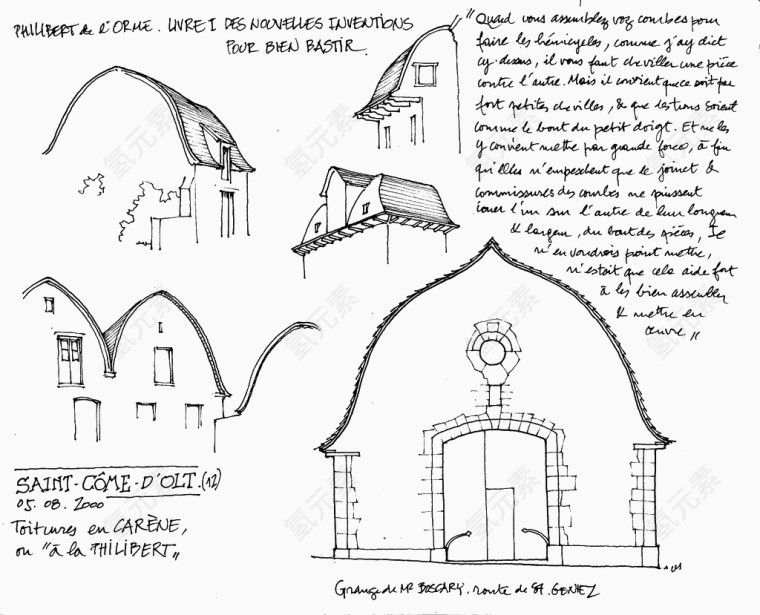 PHILIBERT de L'ORME. LIVRE I DES NOUVELLES INVENTIONS
POUR BIEN BASTIR.
"Quand vous assemblez voz courbes pour
faire les hémicycles, comme j'ay dict
cy-dessus, il vous faut cheviller une pièce
contre l'autre. Mais il convient que ce soit par
fort petites chevilles, & que les tenons soient
comme le bout du petit doigt. Et ne les
y convient mettre par grande force, à fin
qu'elles n'empeschent que le joinct &
commissures des courbes ne puissent
jouer l'un sur l'autre de leur longueur
& largeur, du bout des pièces, Je
n'en voudrois point mettre,
n'estoit que cela aide fort
à les bien assembler
& mettre en
œuvre"
SAINT-CÔME-D'OLT.(12)
05.08.2000
Toitures en CARÈNE,
ou "à la PHILIBERT"
Grange de Mr BOSCARY. route de St. GENIEZ
氢元素
氢元素
氢元素
氢元素
氢元素
氢元素
氢元素
氢元素
氢元素
氢元素
氢元素
氢元素